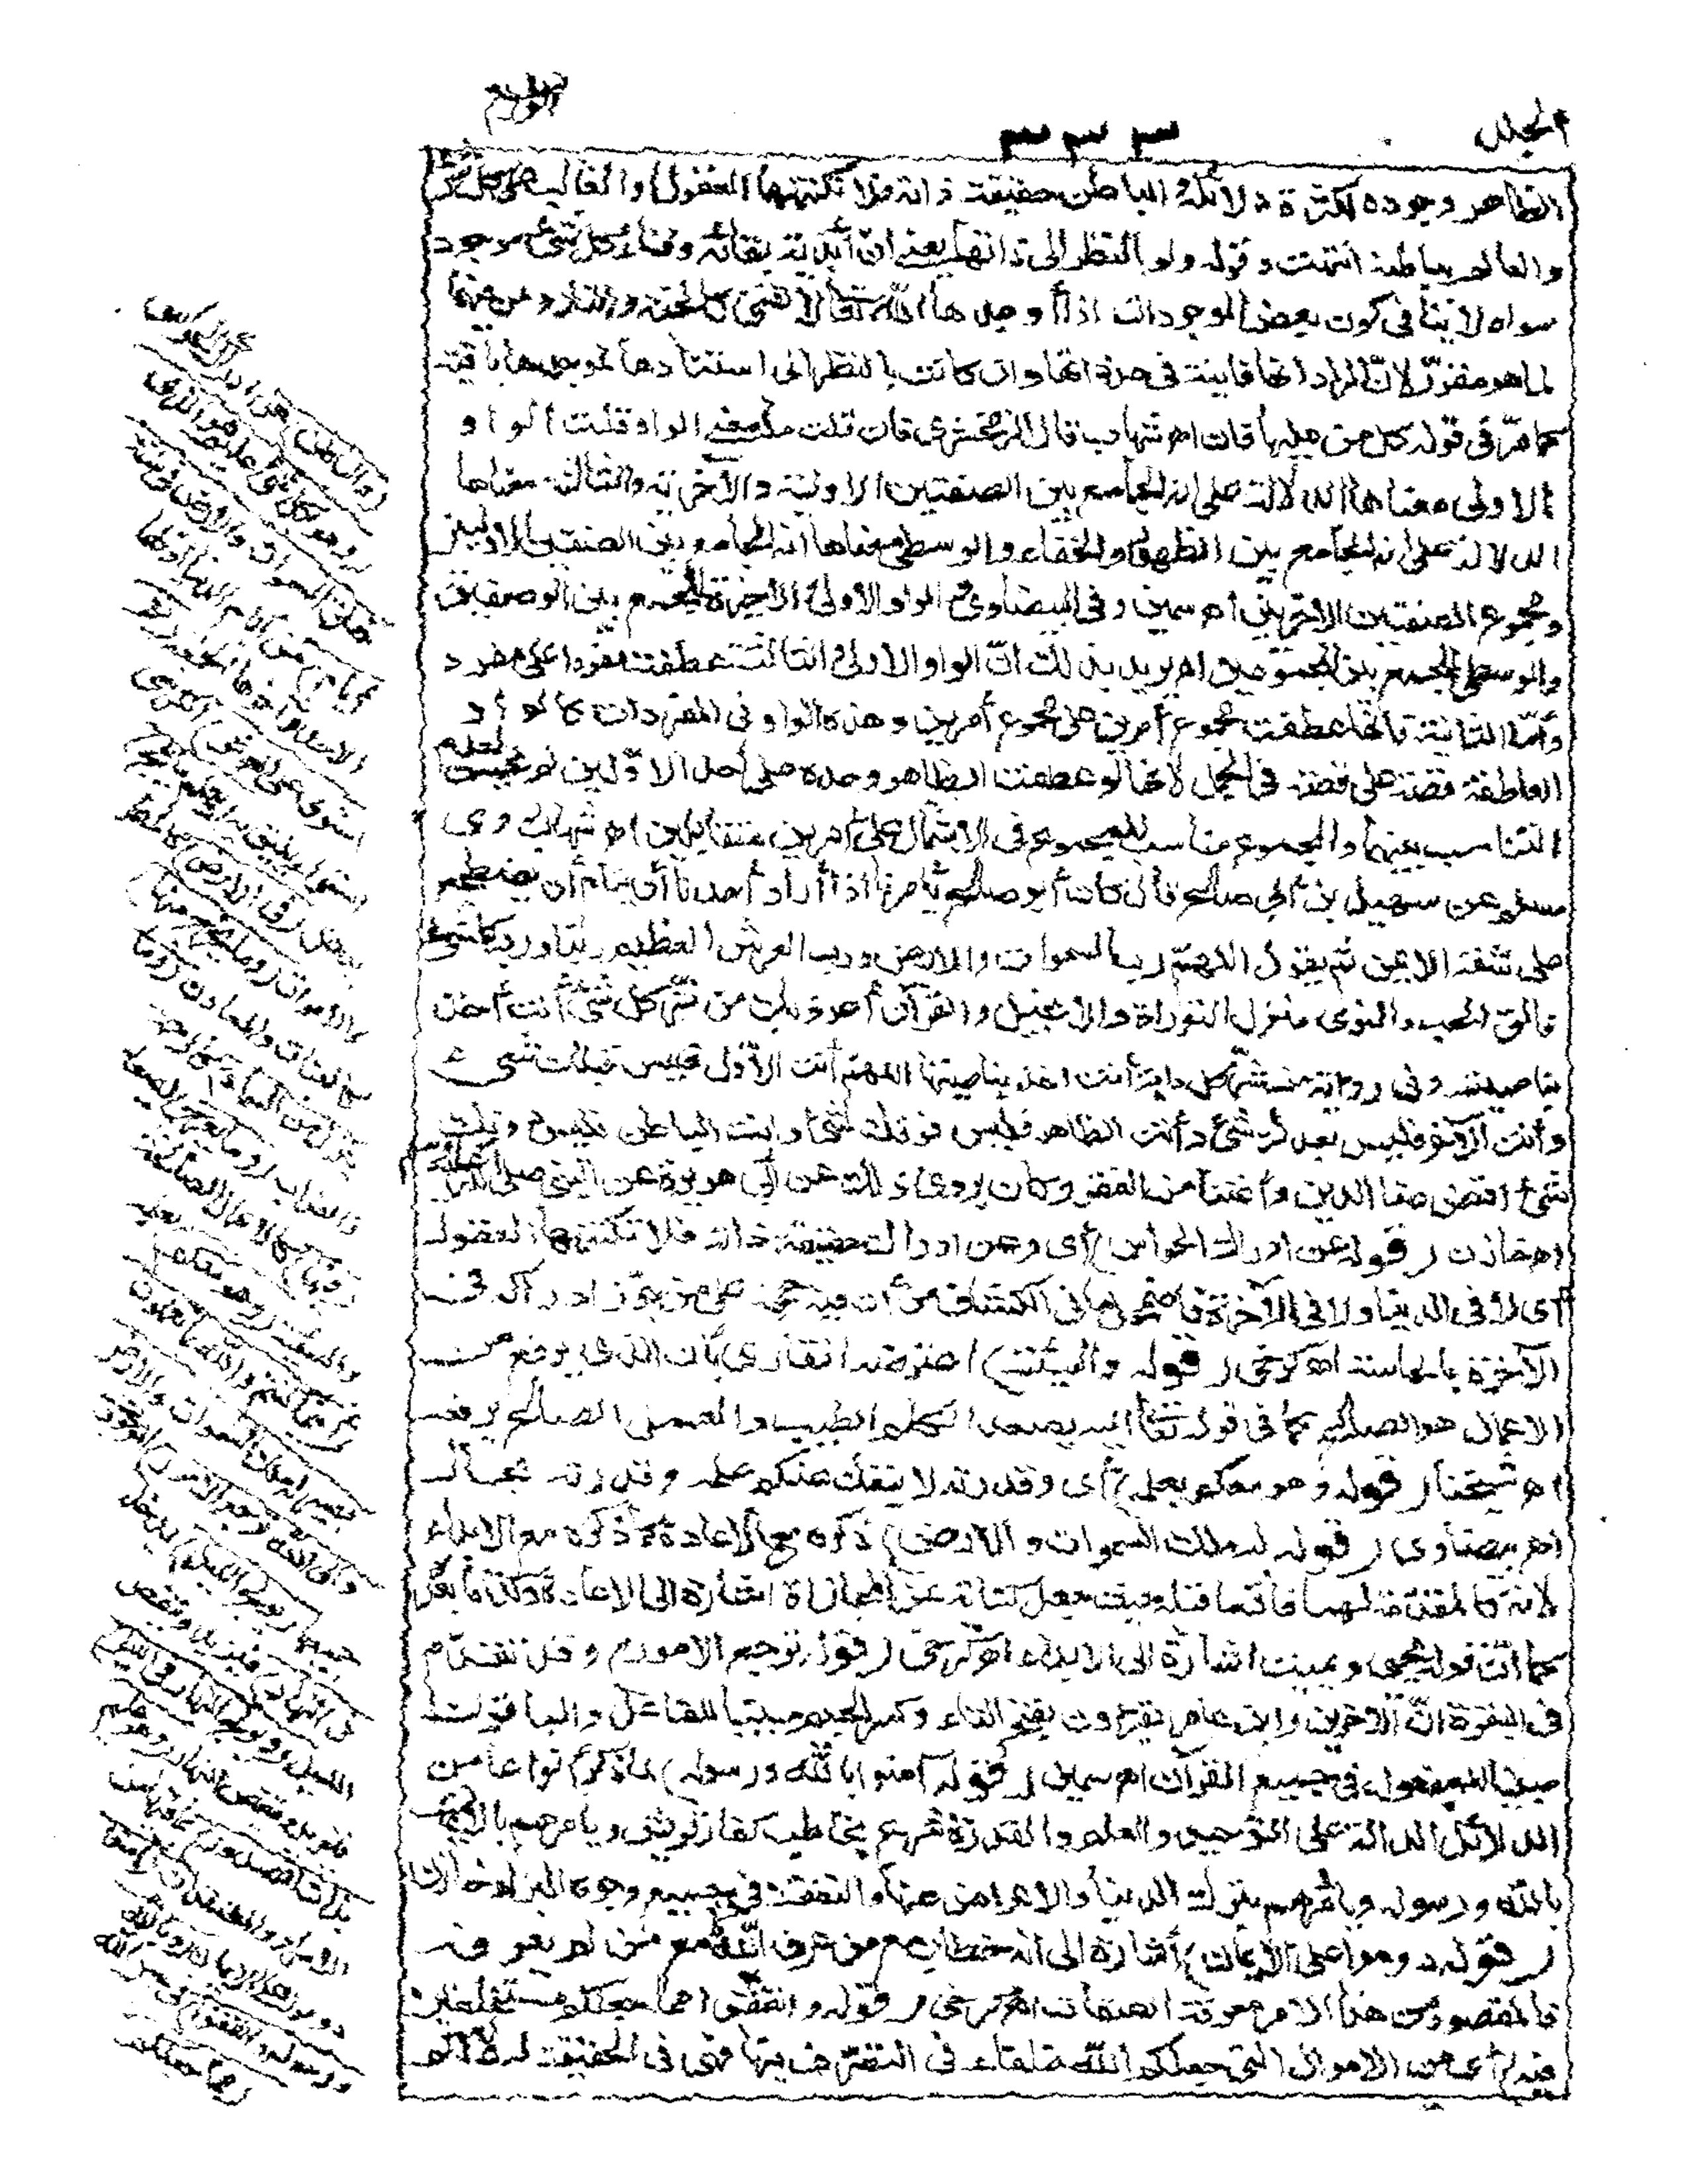 المجلد
٣٣٣
الرابع
الظاهر وجوده لكثرة دلائله الباطن حقيقة ذاته فلا تكتنهها العقول والغالب على كل شئ
والعالم بباطنه انتهت وقوله ولو بالنظر الى ذاتها يعنى ان أبدية بقائه وفناء كل شئ موجود
سواه لا ينافى كون بعض الموجودات اذا أوجدها الله تعالى لا تفنى كالجنة والنار ومن فيهما
لما هو مقرر لان المراد انها فانية فى حد ذاتها وان كانت بالنظر الى استنادها لموجدها باقية
كما مر فى قوله كل من عليها فان اه شهاب قال الزمخشرى فان قلت ما معنى الواو قلت الواو
الاولى معناها الدلالة على انه الجامع بين الصفتين الاولية والآخرية والثالثة معناها
الدلالة على انه الجامع بين الظهور والخفاء والوسطى معناها انه الجامع بين الصفتين الاوليين
ومجموع الصفتين الاخريين اه سمين وفى البيضاوى الواو الاولى والاخيرة للجمع بين الوصفين
والوسطى للجمع بين المجموعين اه يريد بذلك ان الواو الاولى والثالثة عطفت مفردا على مفرد
وأما الثانية فانها عطفت مجموع أمرين على مجموع أمرين وهذه الواو فى المفردات كالواو
العاطفة قصة على قصة فى الجمل لانها لو عطفت الظاهر وحده على أحد الاولين لم يحسن لعدم
التناسب بينهما والمجموع مناسب للمجموع فى الاشتمال على أمرين متقابلين اه شهاب روى
مسلم عن سهيل بن أبى صالح قال كان أبو صالح يأمرنا اذا أراد أحدنا أن ينام أن يضطجع
على شقه الايمن ثم يقول اللهم رب السموات والارض ورب العرش العظيم ربنا ورب كل شئ
فالق الحب والنوى منزل التوراة والانجيل والقرآن أعوذ بك من شر كل شئ أنت آخذ
بناصيته وفى رواية من شر كل دابة أنت آخذ بناصيتها اللهم أنت الأول فليس قبلك شىء
وأنت الآخر فليس بعدك شئ وأنت الظاهر فليس فوقك شئ وأنت الباطن فليس دونك
شئ اقض عنا الدين وأغننا من الفقر وكان يروى ذلك عن أبى هريرة عن النبى صلى الله عليه وسلم
اه خازن (قوله عن ادراك الحواس) أى وعن ادراك حقيقة ذاته فلا تكتنهها العقول
أى لا فى الدنيا ولا فى الآخرة فاضمحل ما فى الكشاف من أن فيه حجة على من جوز ادراكه فى
الآخرة بالحاسة اه كرخى (قوله والسيئة) اعترضه القارى بأن الذى يرفع من
الاعمال هو الصالح كما فى قوله تعالى اليه يصعد الكلم الطيب والعمل الصالح يرفعه
اه شيخنا (قوله وهو معكم بعلمه) أى وقدرته لا ينفك عنكم علمه وقدرته بحال
اه بيضاوى (قوله له ملك السموات والارض) ذكره مع الاعادة كما ذكره مع الابداء
لانه كالمقدمة لهما
كما ان قوله يحيى ويميت اشارة الى الابداء اه كرخى (قوله ترجع الامور) وقد تقدم
فى البقرة ان الاخوين وابن عامر يقرؤن بفتح التاء وكسر الجيم مبنيا للفاعل والباقون
مبنيا للمفعول فى جميع القرآن اه سمين (قوله آمنوا بالله ورسوله) لما ذكر أنواعا من
الدلائل الدالة على التوحيد والعلم والقدرة شرع يخاطب كفار قريش ويأمرهم بالايمان
بالله ورسوله ويأمرهم بترك الدنيا والاعراض عنها والنفقة فى جميع وجوه البر اه خازن
(قوله دوموا على الايمان) أشارة الى انه خطاب مع من عرف الله لا مع من لم يعرفه
فالمقصود من هذا الامر معرفة الصفات اه كرخى (قوله وانفقوا مما جعلكم مستخلفين
فيه) أى من الاموال التى جعلكم الله خلفاء فى التصرف فيها فهى فى الحقيقة له لا لكم
(وهو بكل شئ عليم هو الذى
خلق السموات والارض فى ستة
أيام) من أيام الدنيا أولها
الاحد وآخرها الجمعة (ثم
استوى على العرش) الكرسى
استواء يليق به (يعلم ما يلج)
يدخل (فى الارض) كالمطر
والاموات (وما يخرج منها)
كالنبات والمعادن (وما
ينزل من السماء) كالرحمة
والعذاب (وما يعرج) يصعد
(فيها) كالاعمال الصالحة
والسيئة (وهو معكم) بعلمه
(أينما كنتم والله بما تعملون
بصير له ملك السموات والارض
والى الله ترجع الامور) الموجودات
جميعها (يولج الليل) يدخله
(فى النهار) فيزيد وينقص
الليل (ويولج النهار فى الليل)
فيزيد وينقص النهار (وهو عليم
بذات الصدور) بما فيها من
الاسرار والمعتقدات (آمنوا)
دوموا على الايمان (بالله
ورسوله وانفقوا) فى سبيل الله
(مما جعلكم